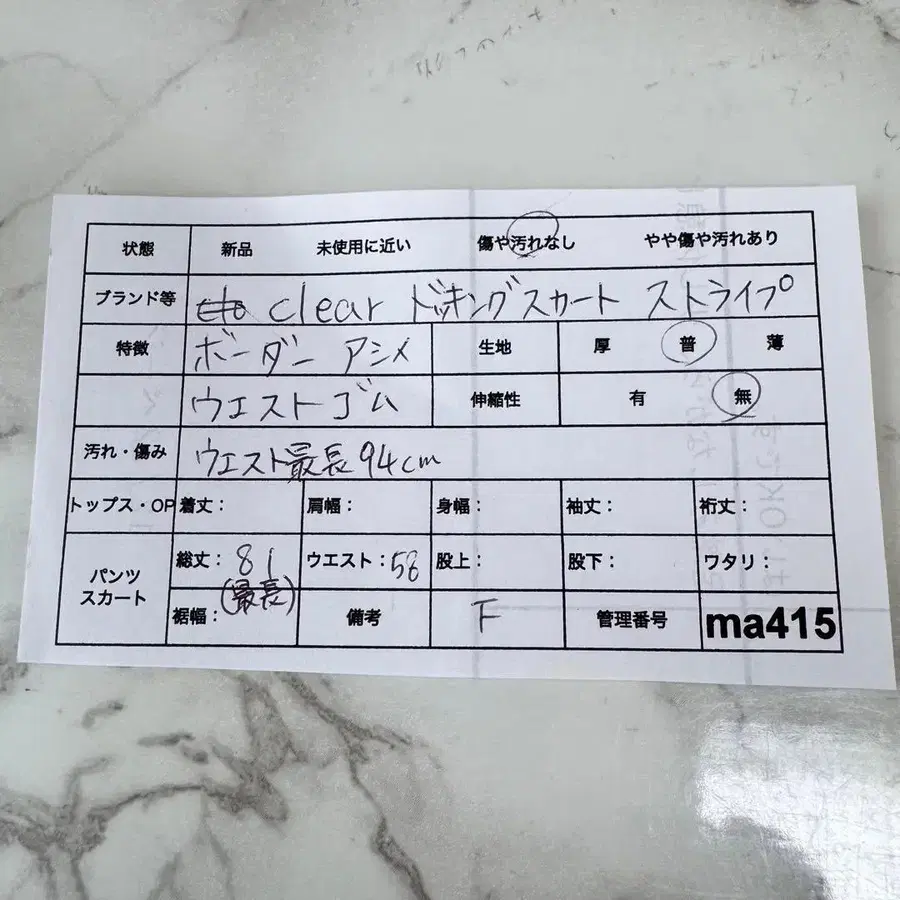 状態 新品 未使用に近い 傷や汚れなし やや傷や汚れあり
ブランド等 clear ドッキングスカート ストライプ
特徴 ボーダー アシメ 生地 厚 普 薄
ウエストゴム 伸縮性 有 無
汚れ・傷み ウエスト最長94cm
トップス・OP 着丈： 肩幅： 身幅： 袖丈： 裄丈：
パンツ スカート 総丈：81 (最長) ウエスト：58 股上： 股下： ワタリ：
裾幅： 備考 F 管理番号 ma415